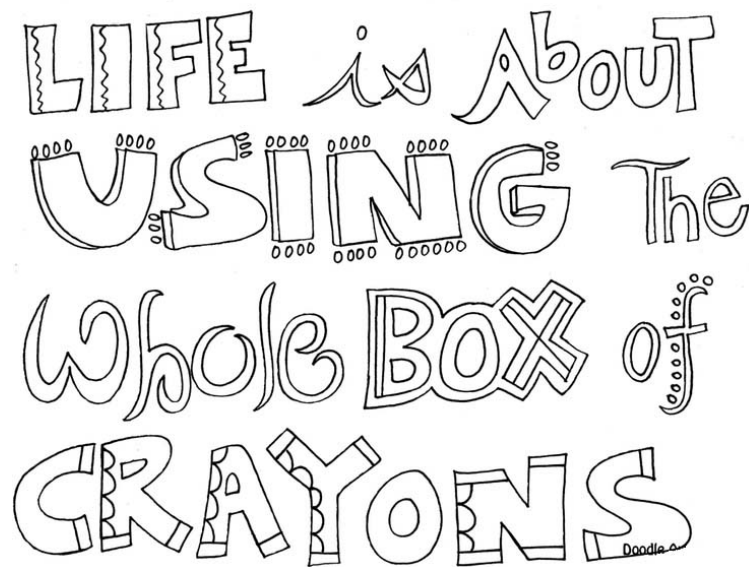 LIFE is AbOUT
USING The
Whole BOX of
CRAYONS
Doodle